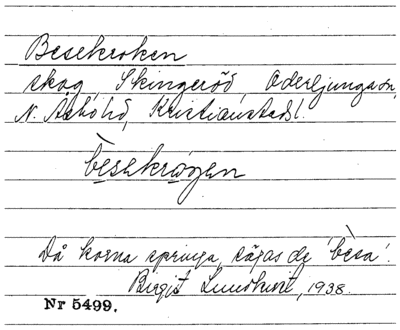 Besekroken
skog, Skingeröd, Oderljunga sn,
N. Åsbo hd, Kristianstads l.
bèsekrogen
Då korna springa, sägas de 'bèsa'.
Birgit Lundkvist, 1938.
Nr 5499.